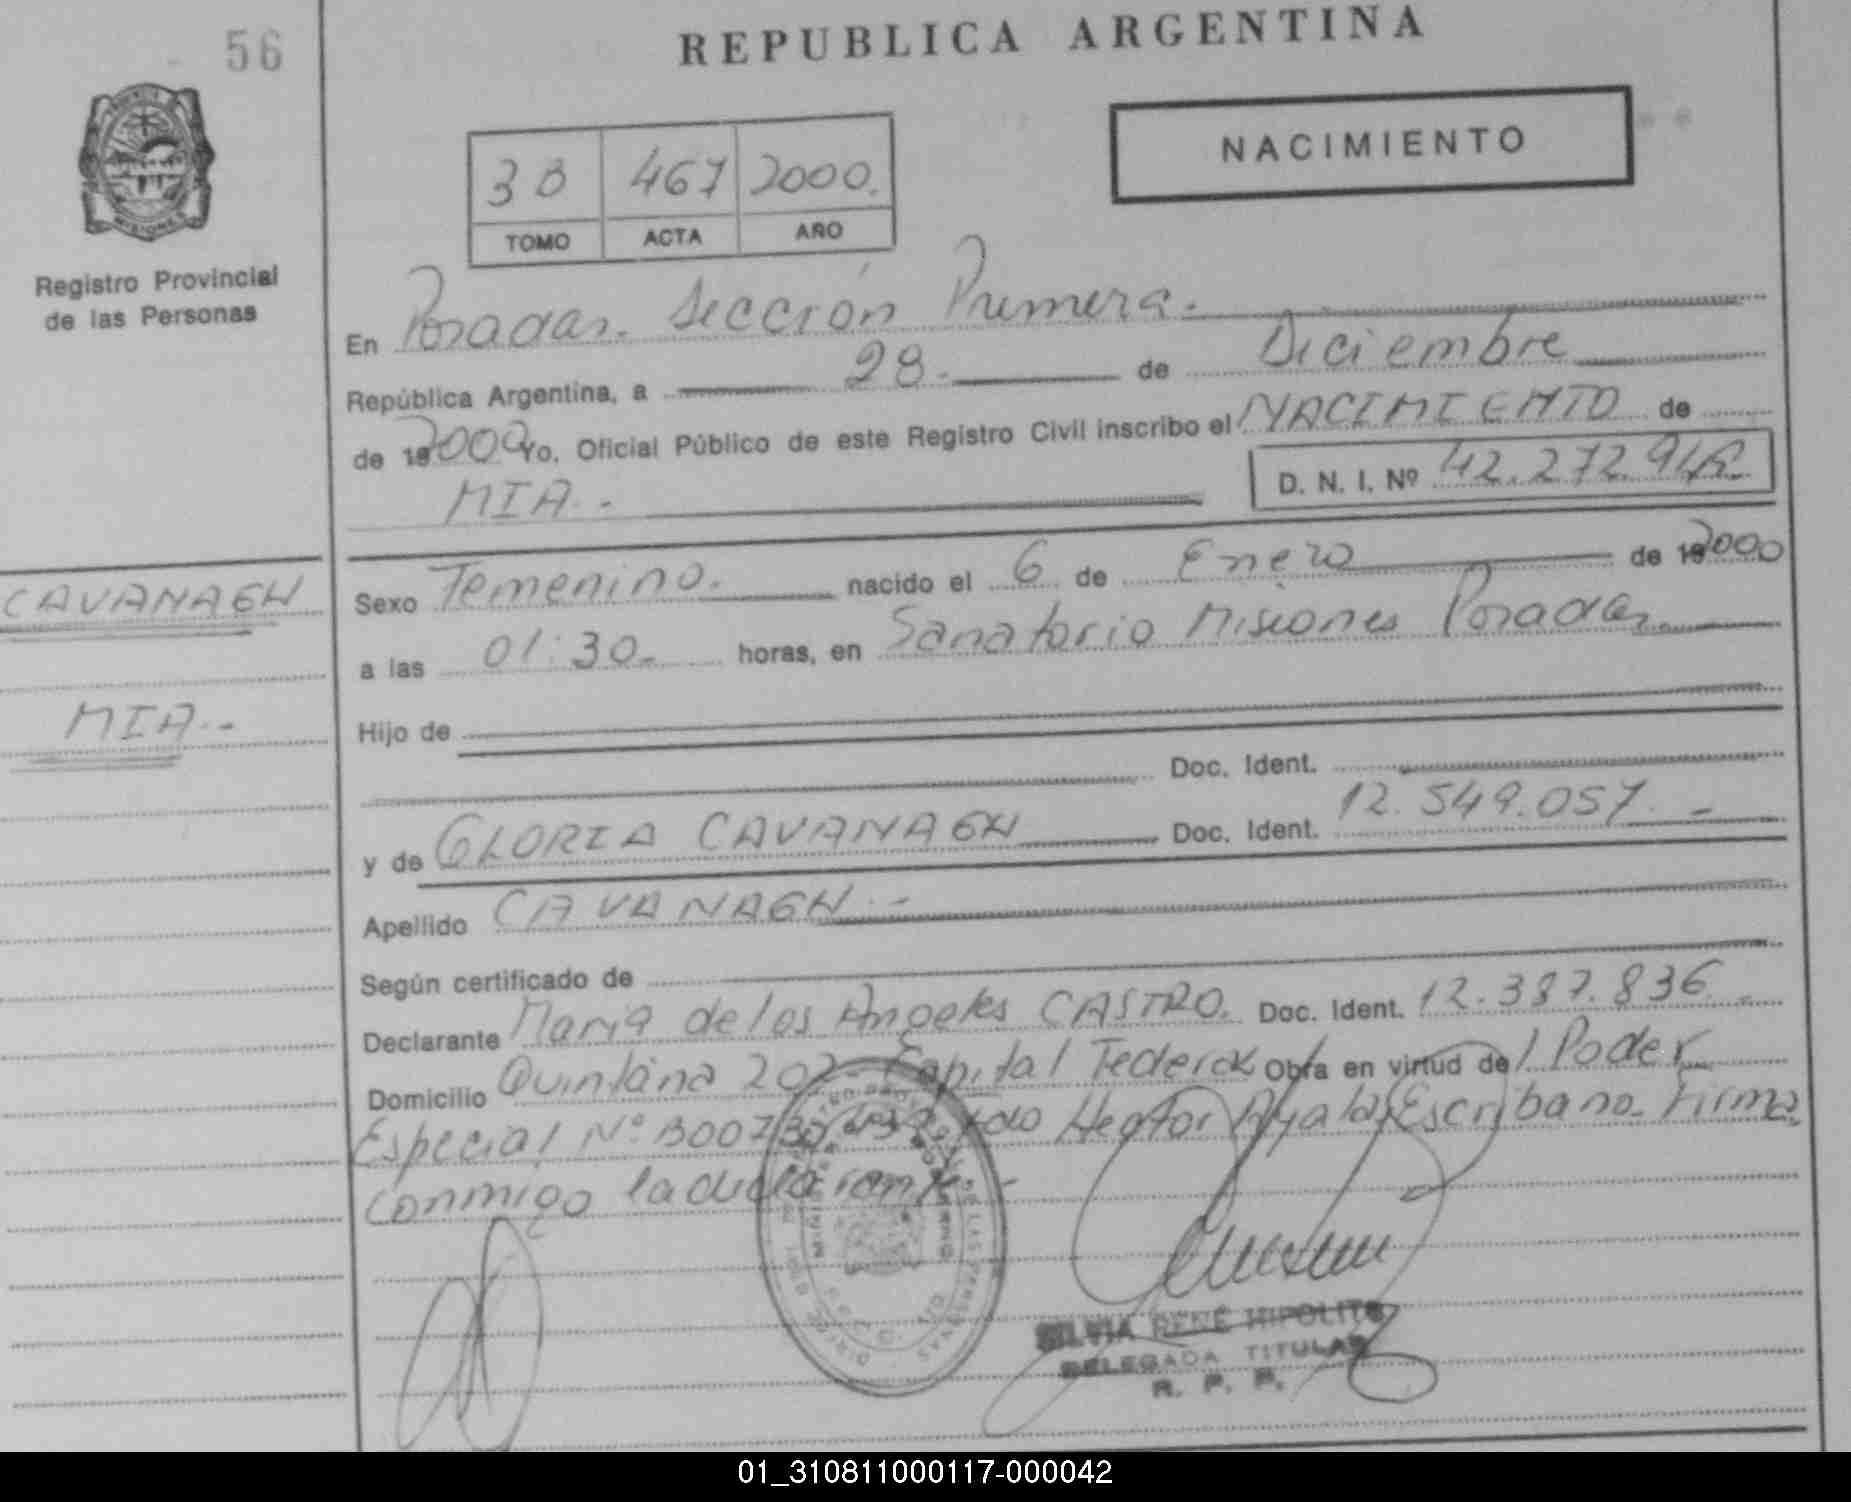 56
REPUBLICA ARGENTINA
NACIMIENTO
3B 467 2000.
TOMO ACTA AÑO
MISIONES
Registro Provincial
de las Personas
En Posadas. Sección Primera.
República Argentina, a 28. de Diciembre
de 19 2000 Yo, Oficial Público de este Registro Civil inscribo el NACIMIENTO de
MIA.- D. N. I. Nº 42.272.94
CAVANAGH
MIA.-
Sexo Femenino. nacido el 6 de Enero de 19 2000
a las 01:30.- horas, en Sanatorio Misiones Posadas.
Hijo de
Doc. Ident.
y de GLORIA CAVANAGH Doc. Ident. 12.549.057.-
Apellido CAVANAGH.-
Según certificado de
Declarante Maria de los Angeles CASTRO. Doc. Ident. 12.387.836.-
Domicilio Quintana 202- Capital Federal Obra en virtud de Poder
Especial Nº Hector Ayala Escribano. Firma
conmigo la declarante.-
SILVIA RENÉ HIPOLITO
DELEGADA TITULAR
R. P. P.
01_310811000117-000042